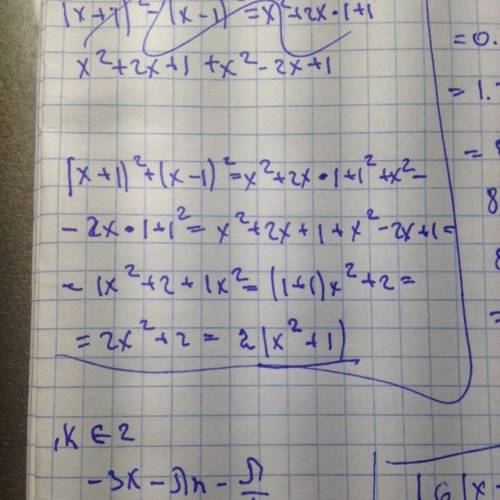 (x+1)² - (x-1)² = x²+2x·1+1
x²+2x+1 +x²-2x+1
(x+1)²+(x-1)²=x²+2x·1+1²+x²-
-2x·1+1²= x²+2x+1+x²-2x+1=
= 1x²+2+1x²=(1+1)x²+2=
=2x²+2 = 2(x²+1)
,K ∈ Z
-3x - πn - π
=0.
=1.
=
8
=